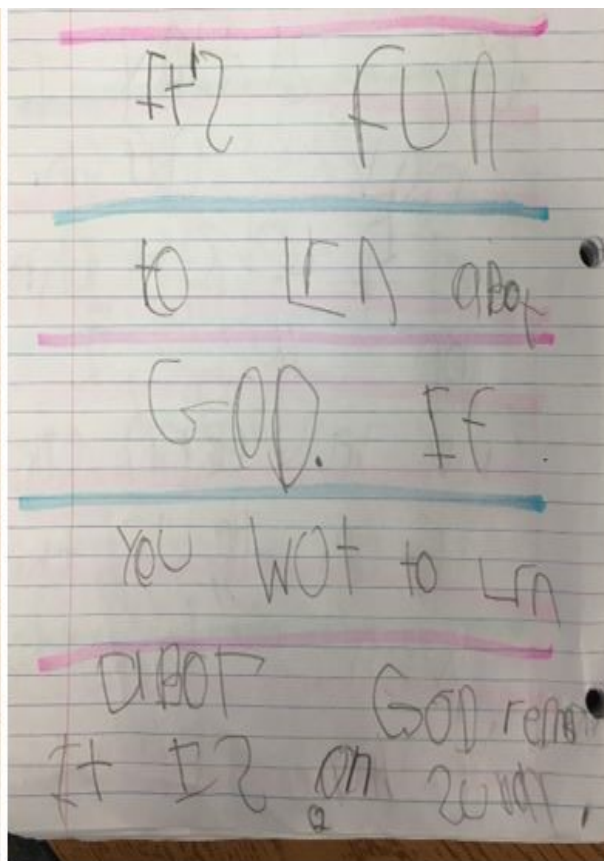 It's FUN
to LrN aBot
GOD. IF
You WOt to Lrn
aBOT GOD rem
It IS on a SUNDY.